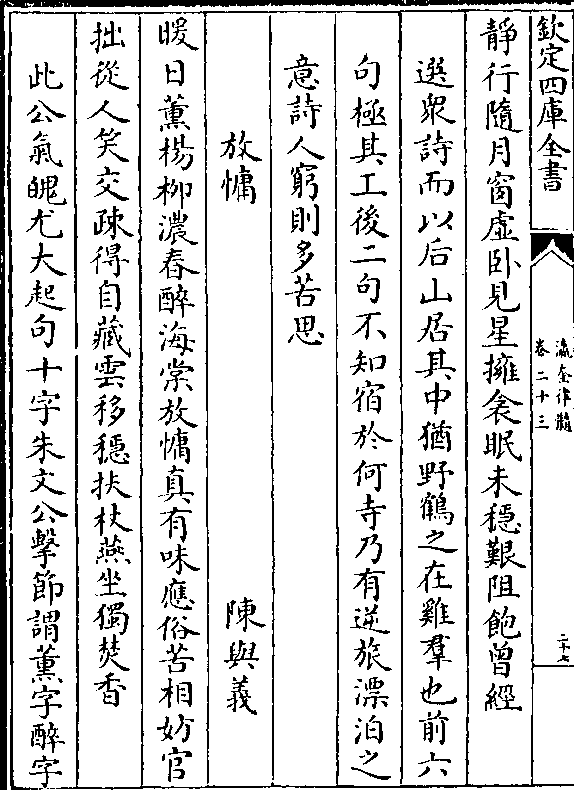 欽定四庫全書
瀛奎律髓
卷二十三
二十七
靜行隨月窗虛卧見星擁衾眠未穩艱阻飽曾經
選衆詩而以后山居其中猶野鶴之在雞羣也前六
句極其工後二句不知宿於何寺乃有逆旅漂泊之
意詩人窮則多苦思
放慵
陳與義
暖日薰楊柳濃春醉海棠放慵真有味應俗苦相妨官
拙從人笑交疎得自藏雲移穩扶杖燕坐獨焚香
此公氣魄尤大起句十字朱文公擊節謂薰字醉字